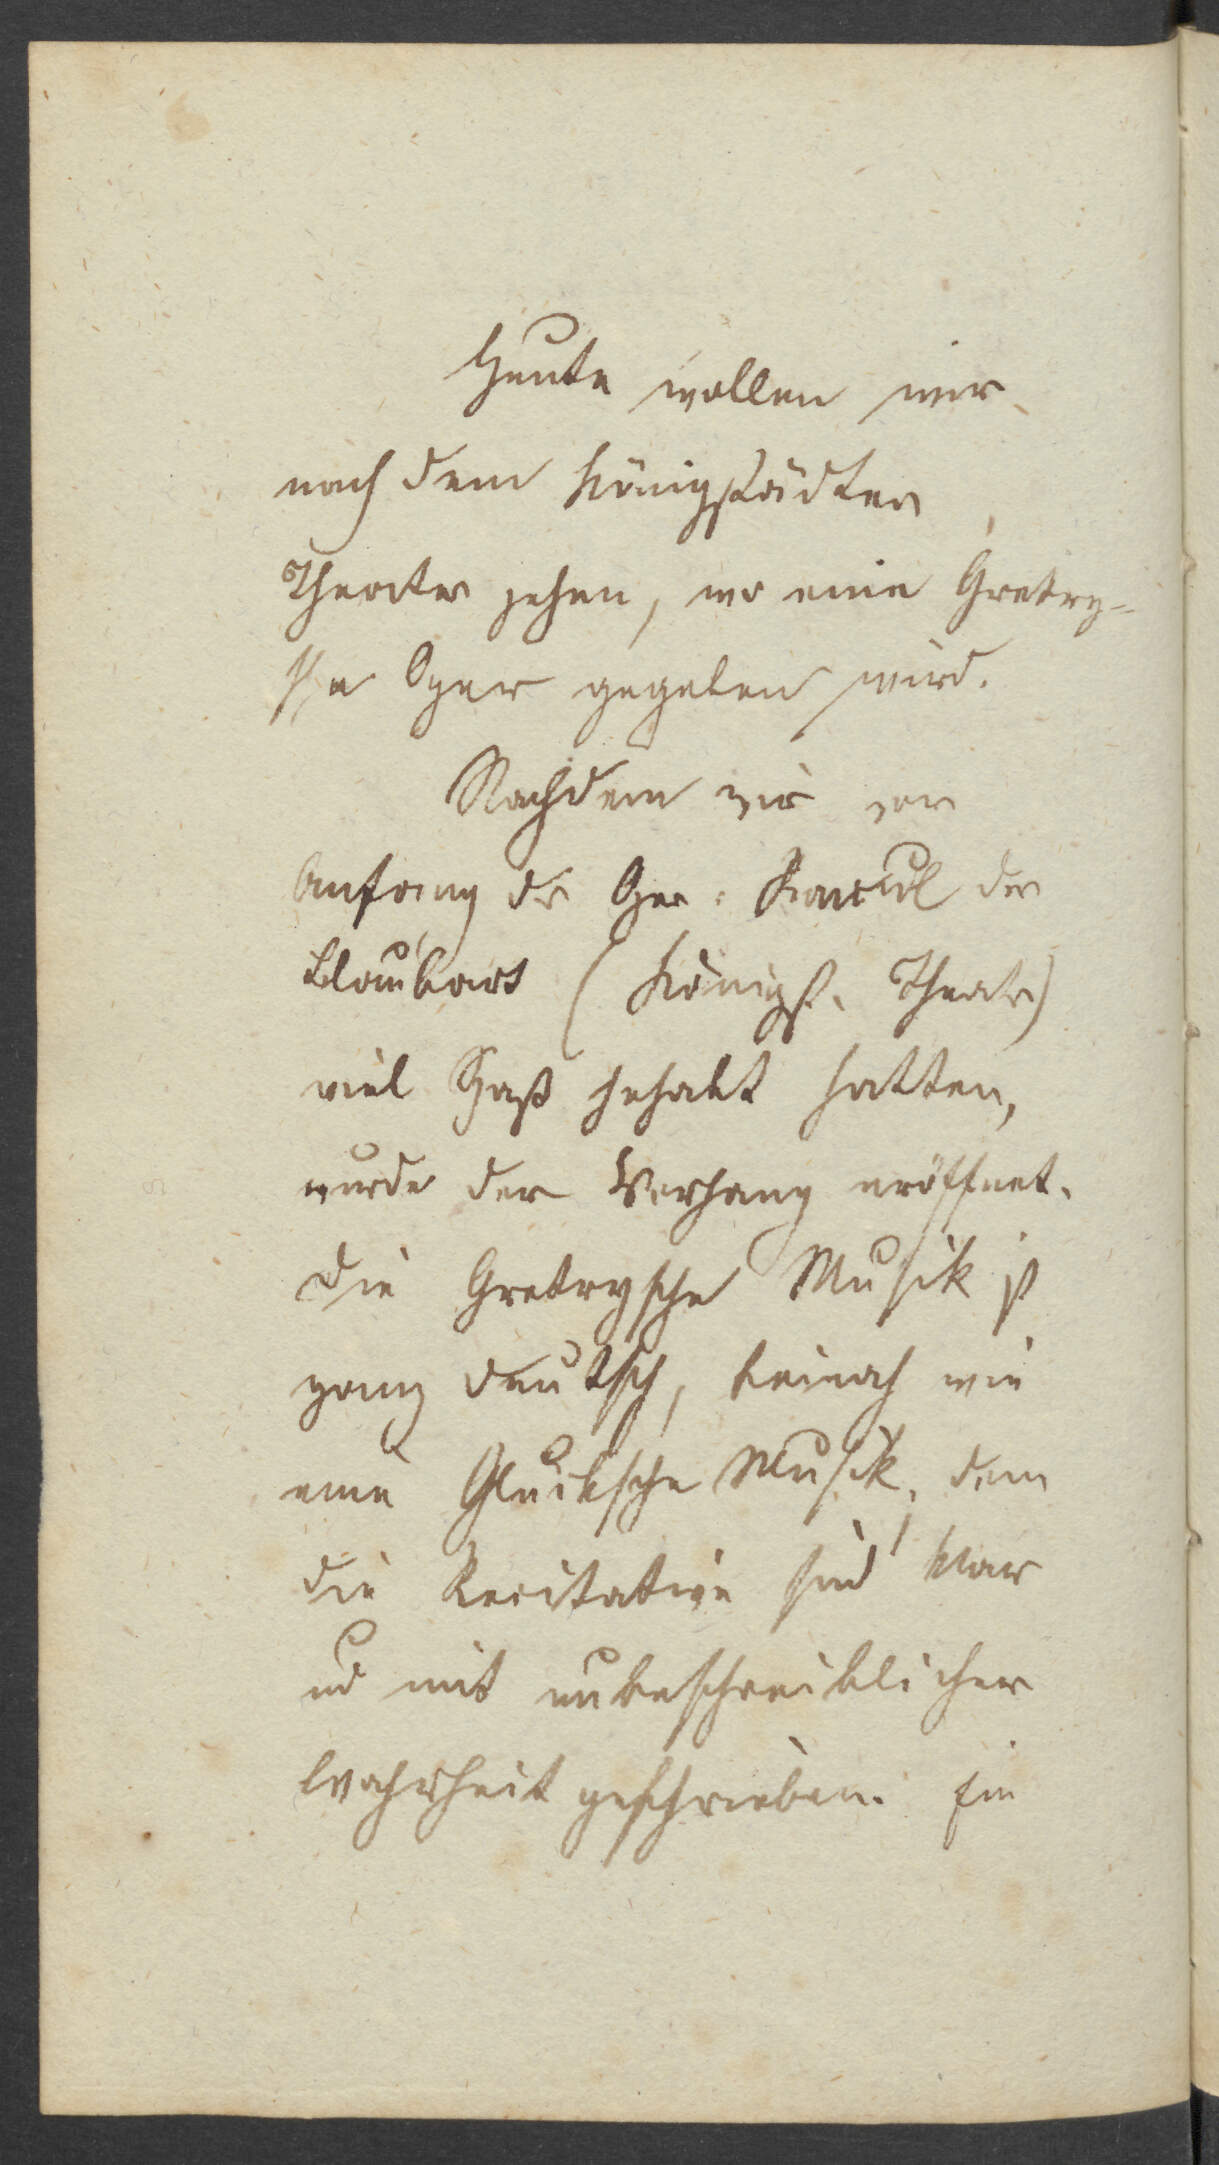 Heute wollen wir
nach dem Königstädter
Theater gehen, wo eine Gretry-
sche Oper gegeben wird.
Nachdem wir vor
Anfang der Oper: Raoul der
Blaubart (Königst. Theater)
viel Spaß gehabt hatten,
wurde der Vorhang eröffnet.
Die Gretrysche Musik ist
ganz deutsch, beinah wie
eine Glucksche Musik, denn
die Recitative sind klar
und mit unbeschreiblicher
Wahrheit geschrieben. Ein